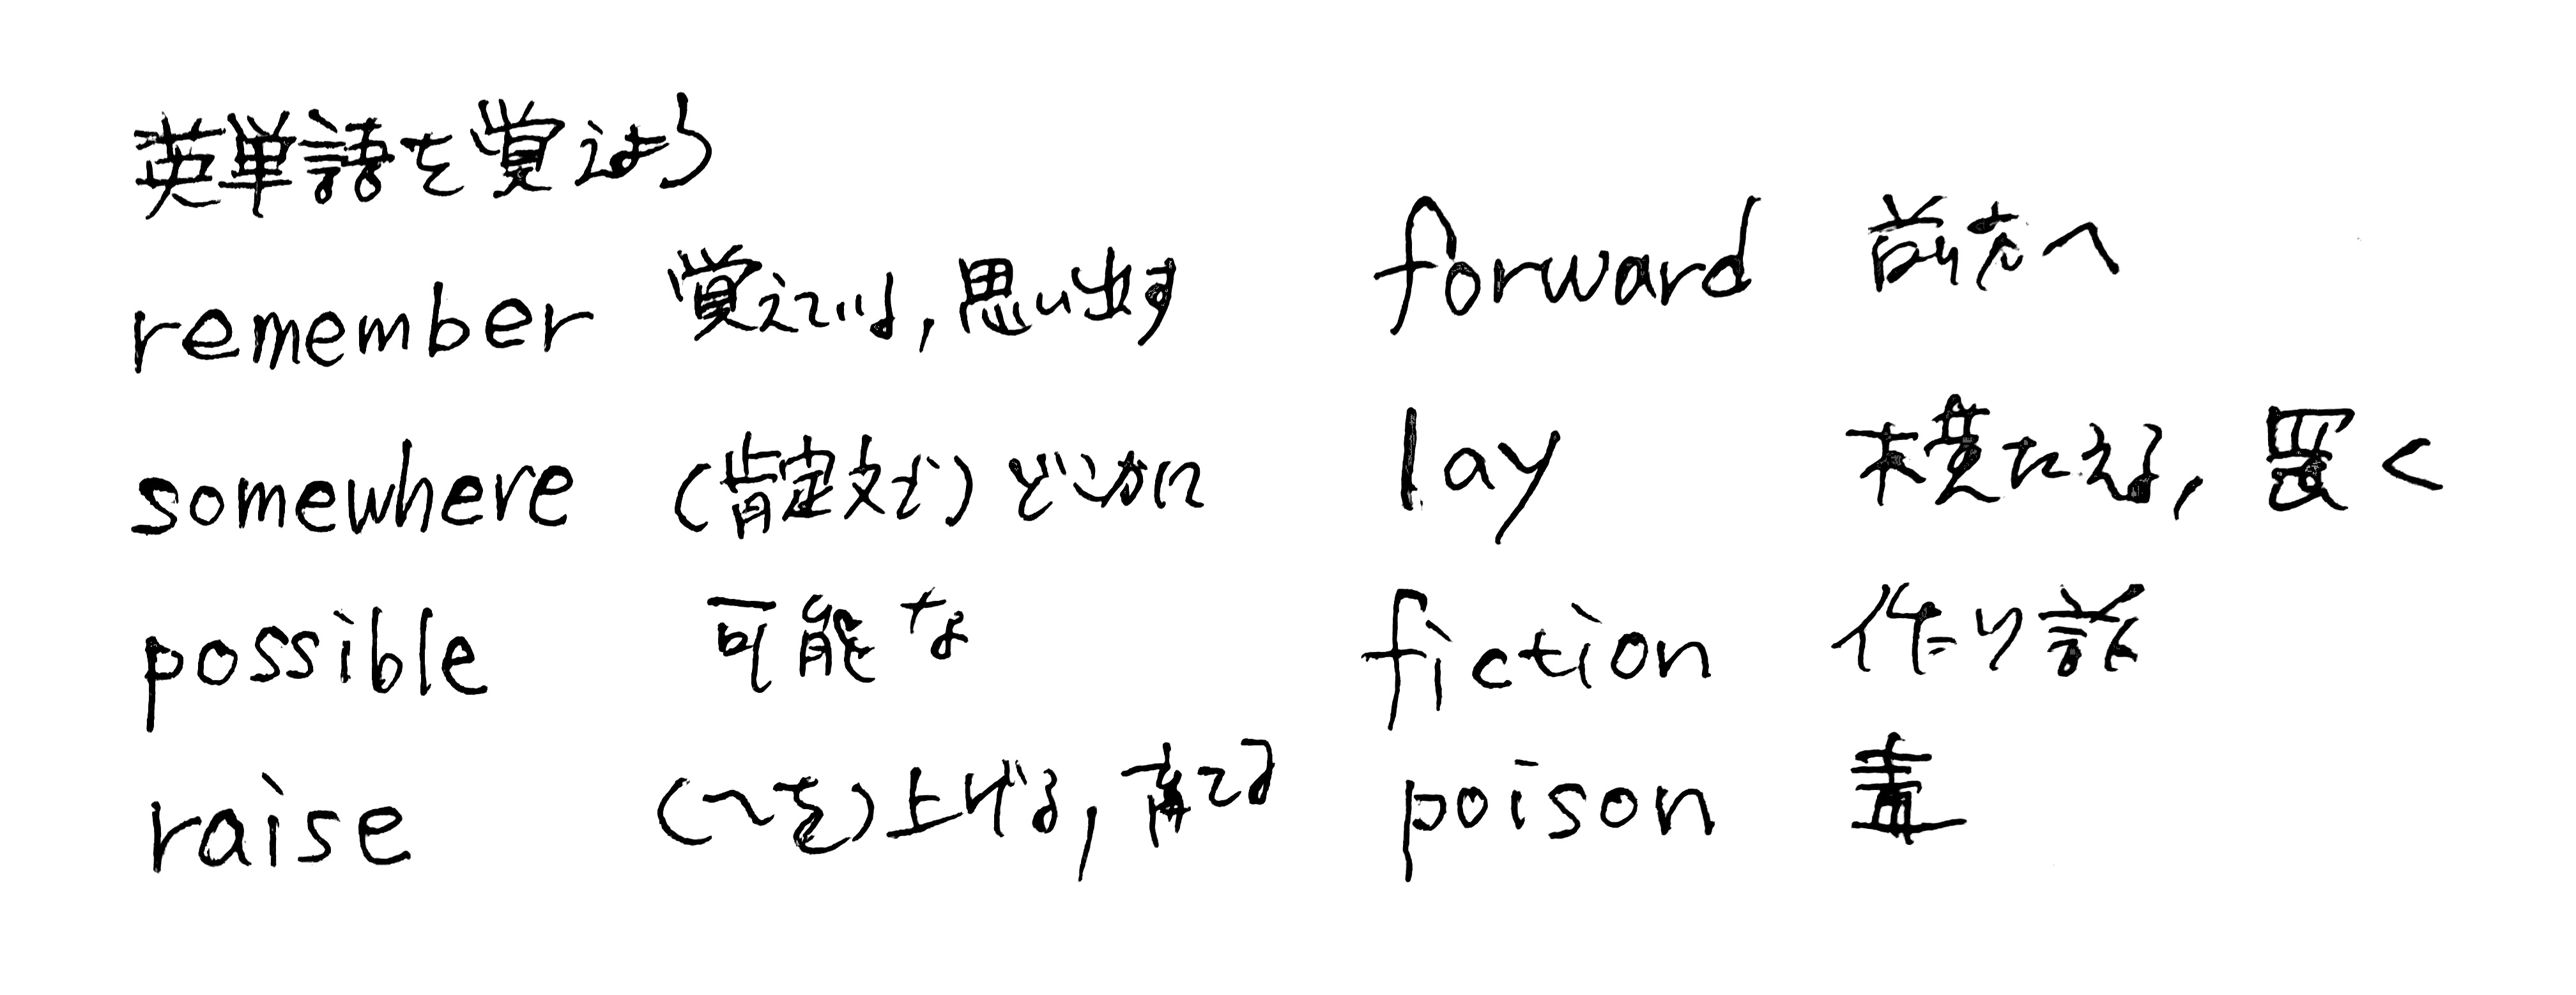 英単語を覚えよう
remember 覚えている,思い出す
somewhere (肯定文で)どこかに
possible 可能な
raise (〜を)上げる,育てる
forward 前方へ
lay 横たえる,置く
fiction 作り話
poison 毒